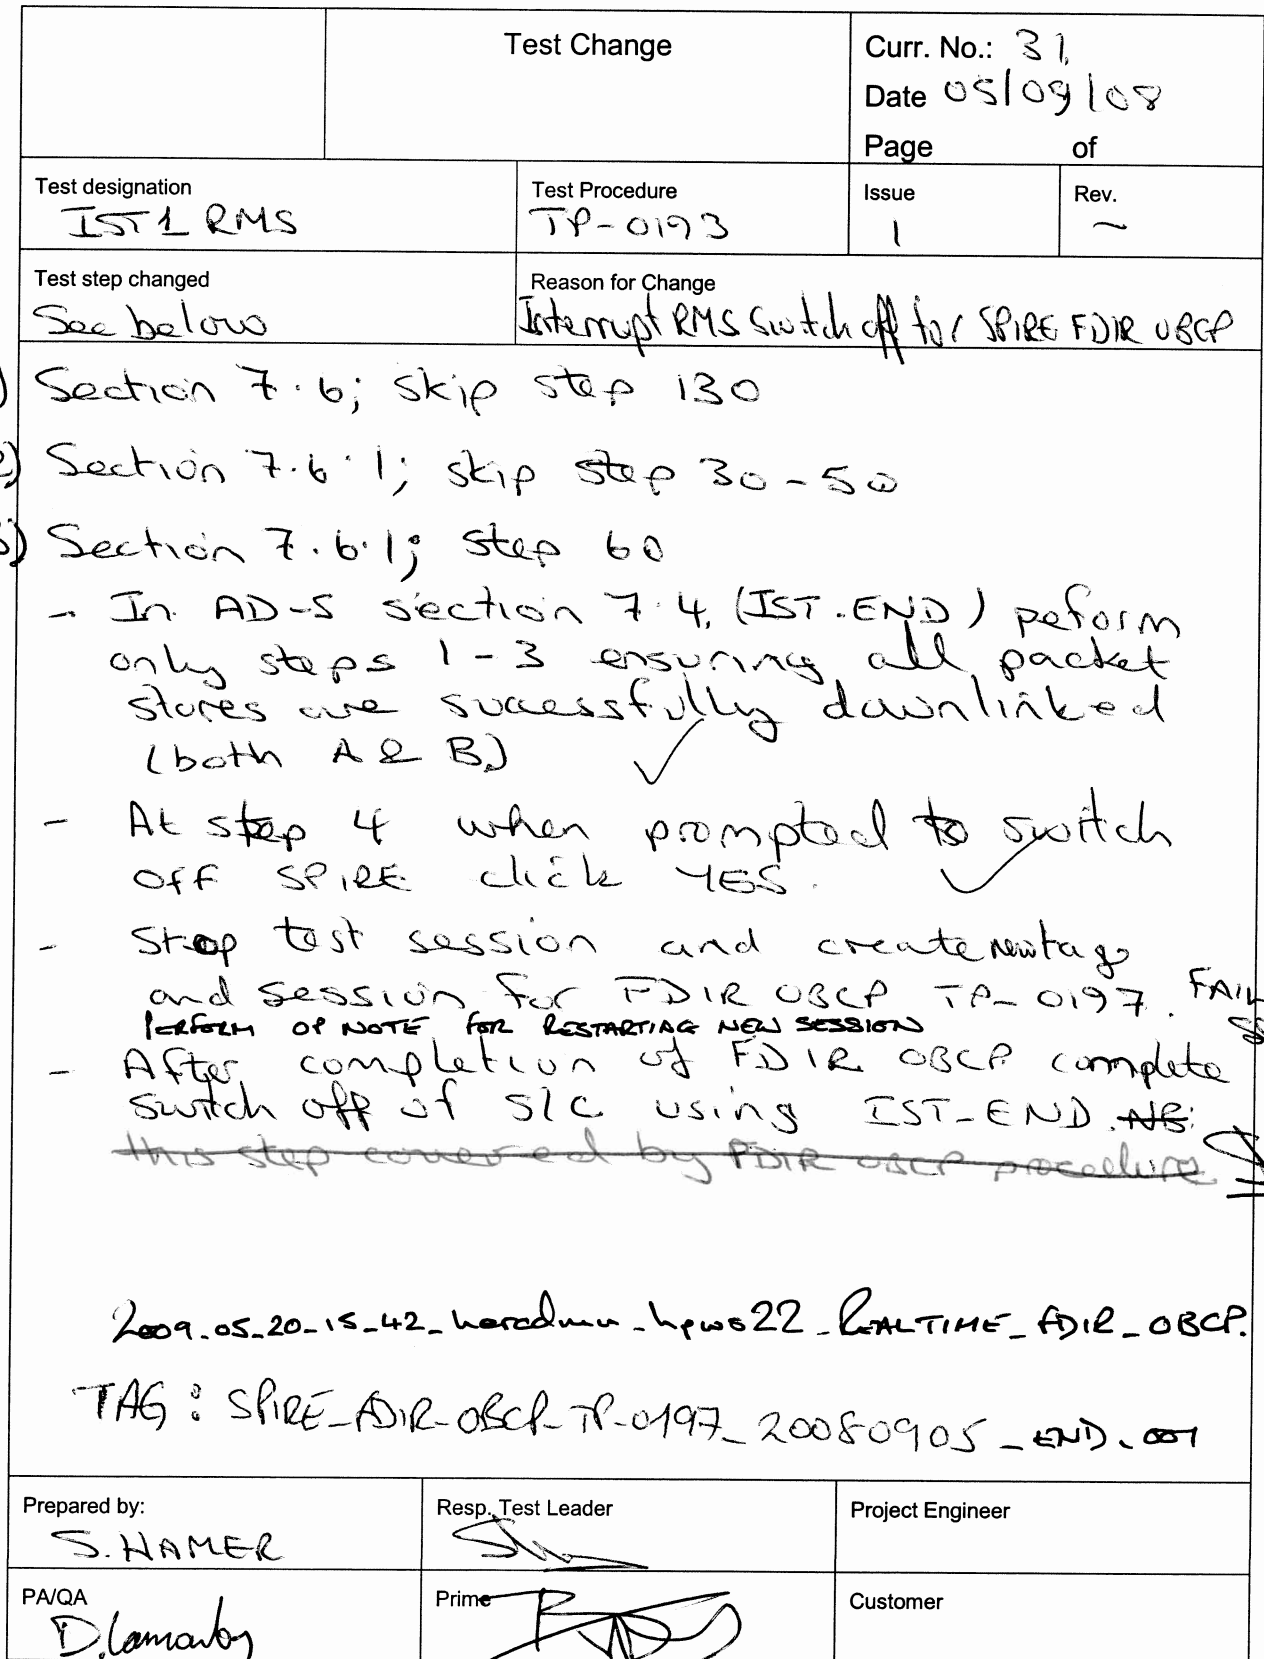 Test Change
Curr. No.: 31
Date 05/09/08
Page of
Test designation
IST1 RMS
Test Procedure
TP-0193
Issue
1
Rev.
~
Test step changed
See below
Reason for Change
Interrupt RMS Switch off for SPIRE FDIR OBCP
) Section 7.6; skip step 130
2) Section 7.6.1; skip step 30-50
3) Section 7.6.1; step 60
- In AD-5 section 7.4. (IST.END) peform
only steps 1-3 ensuring all packet
stores are successfully downlinked
(both A & B)
- At step 4 when prompted to switch
off SPIRE click YES.
- Stop test session and create new tag
and session for FDIR OBCP TP-0197. FAIL
PERFORM OP NOTE FOR RESTARTING NEW SESSION
- After completion of FDIR OBCP complete
switch off of S/C using IST-END. NB:
this step covered by FDIR OBCP procedure
2009.05_20_15_42_ hpws22_REALTIME_FDIR_OBCP.
TAG: SPIRE_FDIR_OBCP_TP-0197_20080905_END.001
Prepared by:
S. HAMER
Resp. Test Leader
Project Engineer
PA/QA
Prime
Customer